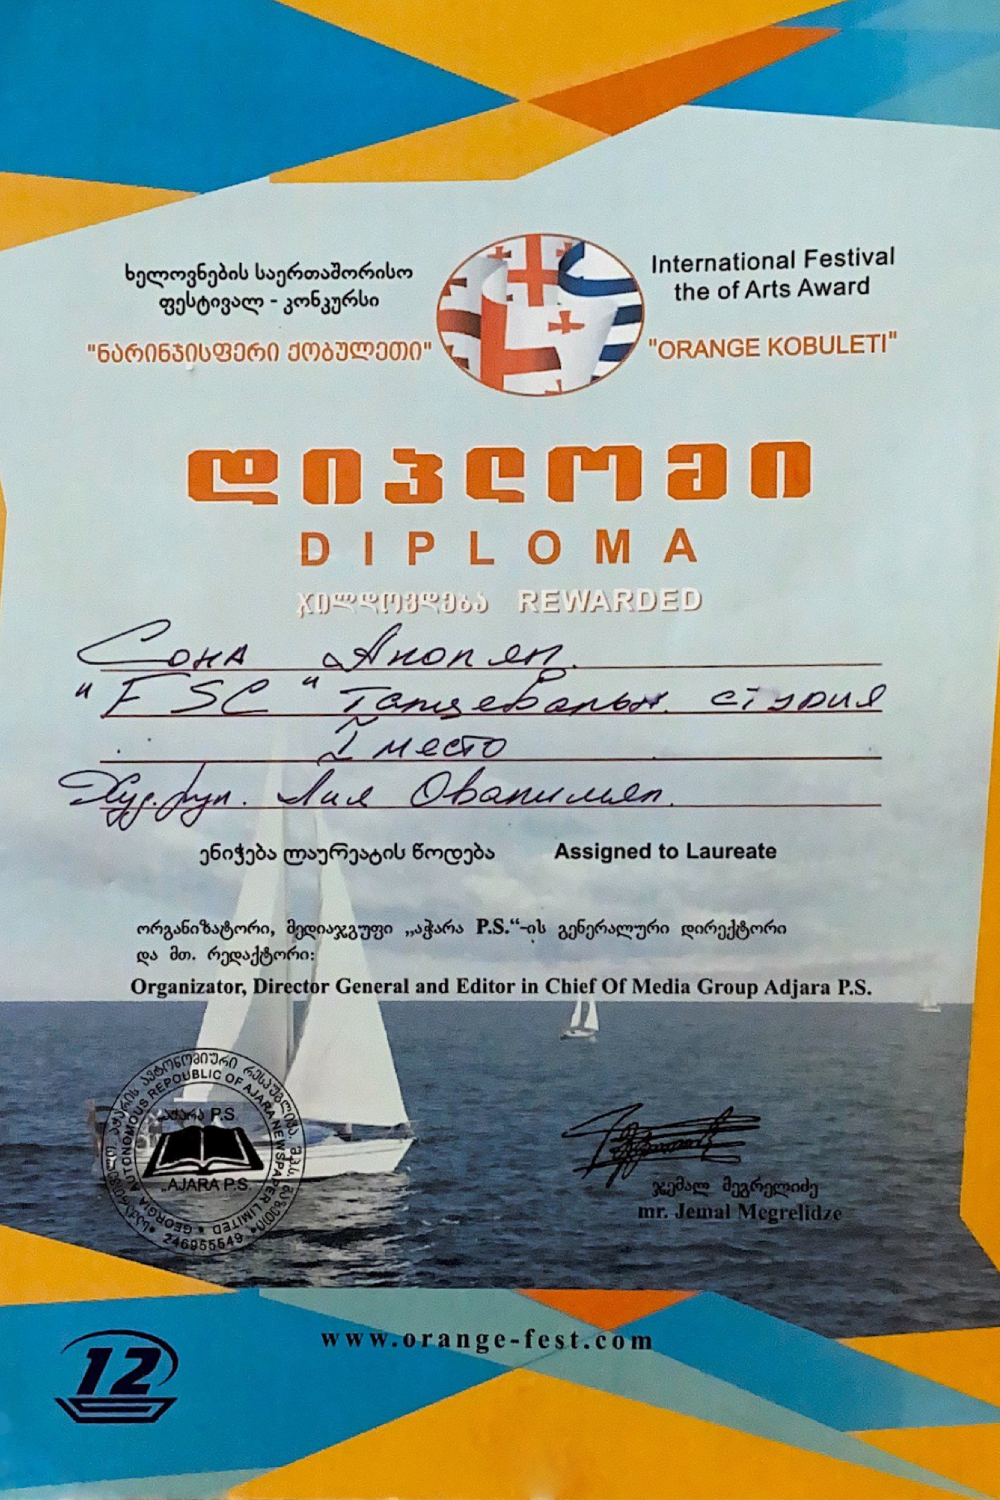 ხელოვნების საერთაშორისო
ფესტივალ - კონკურსი
"ნარინჯისფერი ქობულეთი"
International Festival
the of Arts Award
"ORANGE KOBULETI"
დიპლომი
DIPLOMA
ჯილდოვდება REWARDED
Сона Акопян.
"FSC" Танцевальн. студия
I место
Худ. рук. Лия Овапимян.
ენიჭება ლაურეატის წოდება Assigned to Laureate
ორგანიზატორი, მედიაჯგუფი „აჭარა P.S.“-ის გენერალური დირექტორი
და მთ. რედაქტორი:
Organizator, Director General and Editor in Chief Of Media Group Adjara P.S.
აჭარა P.S.
„AJARA P.S.
GEORGIA AUTONOMOUS REPOUBLIC OF AJARA NEWSPAPER LIMITED
246955549
ჯემალ მეგრელიძე
mr. Jemal Megrelidze
www.orange-fest.com
12